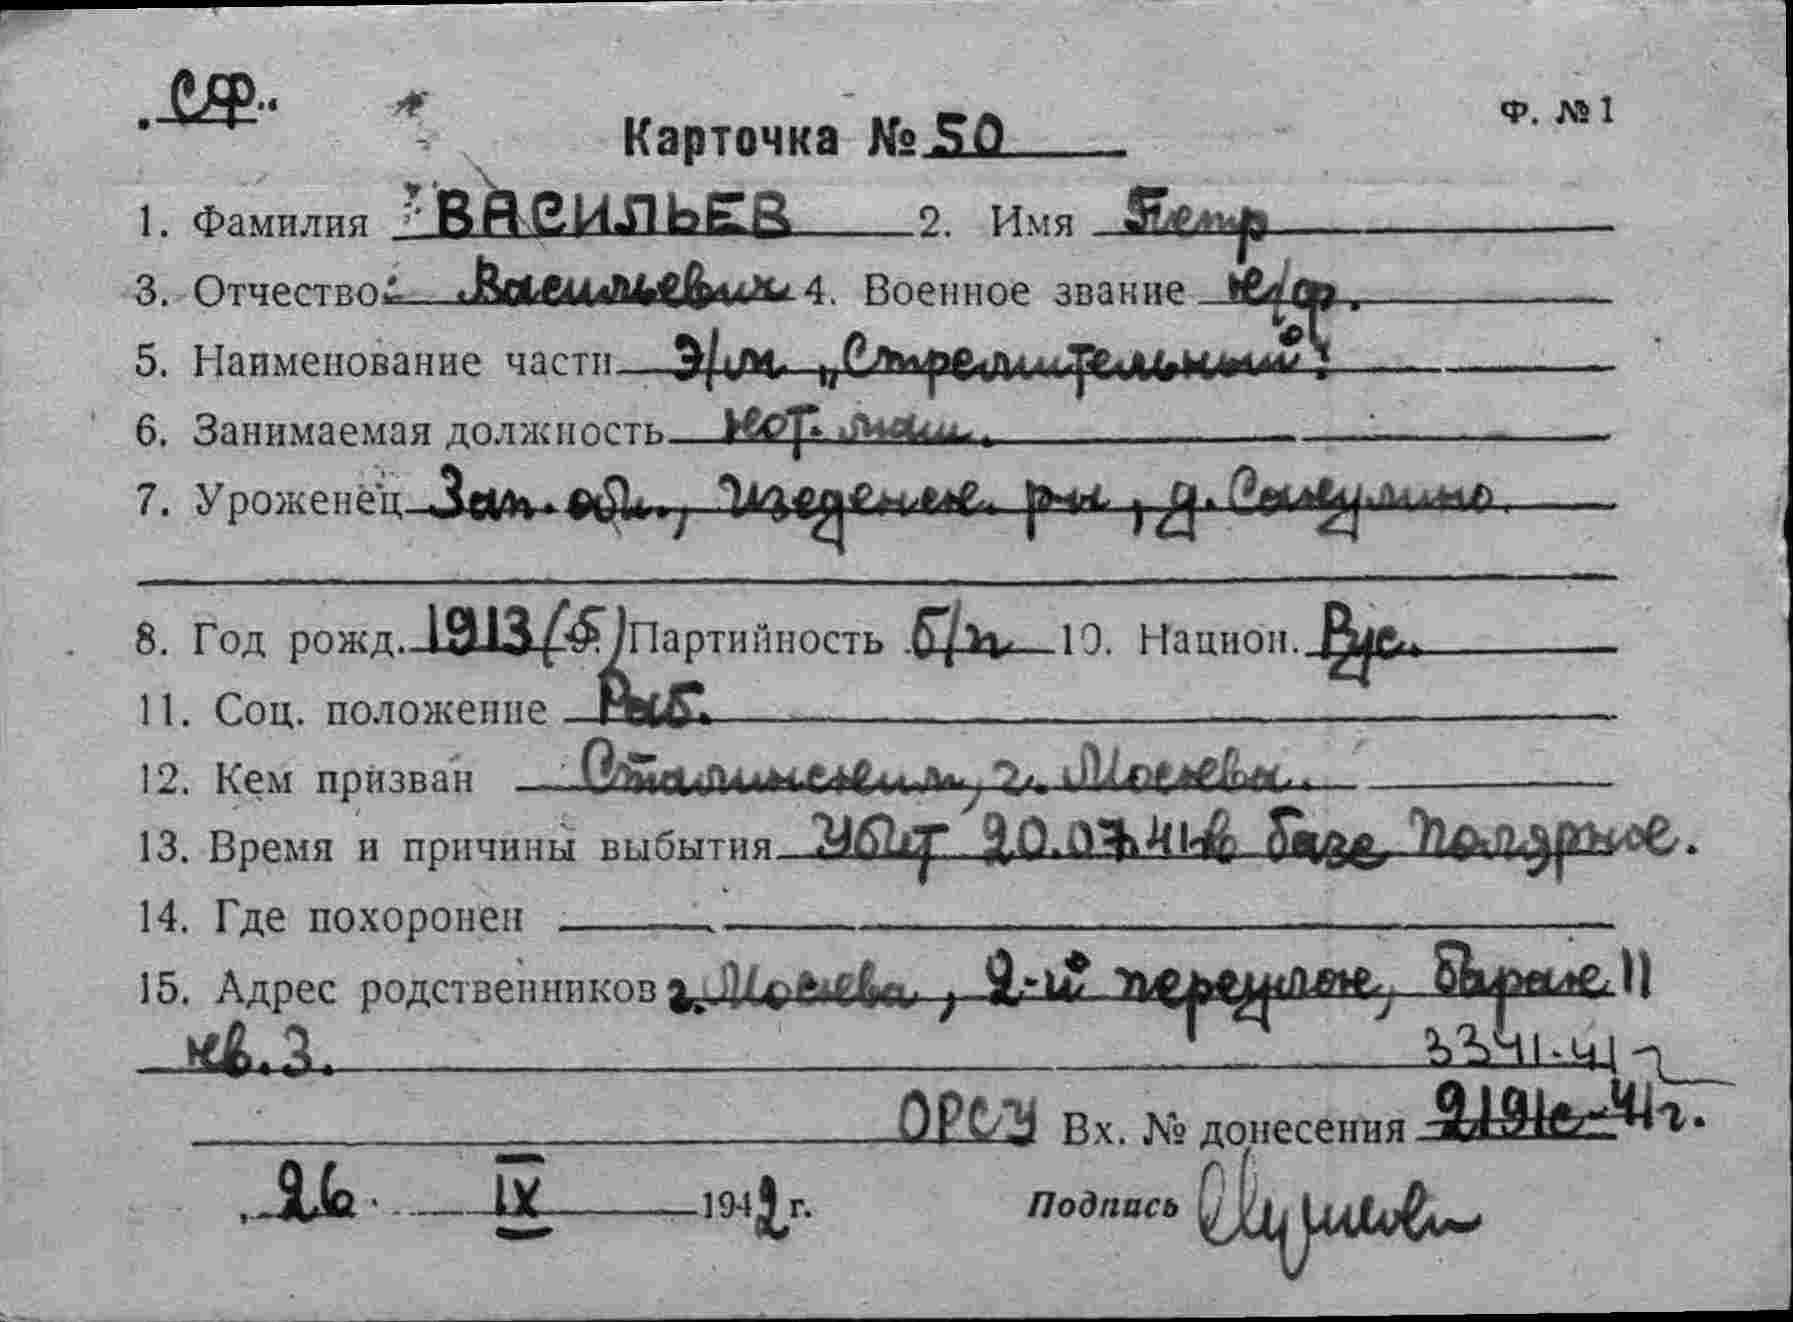 „СФ"
Ф. №1
Карточка № 50
1. Фамилия ВАСИЛЬЕВ 2. Имя Петр
3. Отчество Васильевич 4. Военное звание к/ф.
5. Наименование части Э/м „Стремительный".
6. Занимаемая должность кот. маш.
7. Уроженец Зап. обл., Изеденск. р-н, д. Сакулино.
8. Год рожд. 1913 (5) Партийность б/п 10. Национ. Рус.
11. Соц. положение Раб.
12. Кем призван Сталинским, г. Москвы.
13. Время и причины выбытия Убит 20.07.41 в базе Полярное.
14. Где похоронен
15. Адрес родственников г. Москва, 2-й переулок, барак 11
кв. 3.
3341-41г
ОРСУ Вх. № донесения 2191с-41г.
„26" IX 1942 г. Подпись